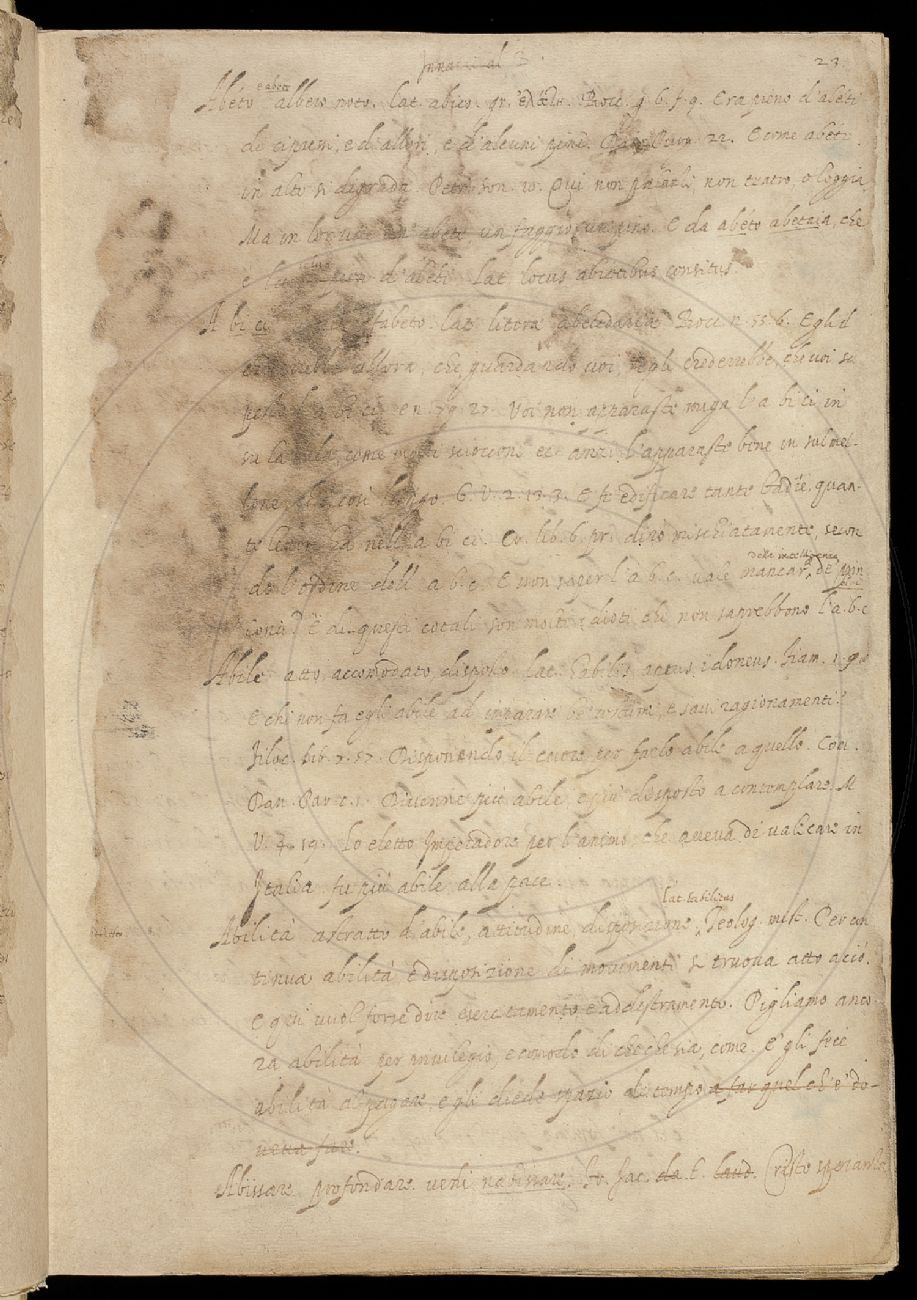 23.
Abéto e abete albero noto. Lat. abies. gr. ἐλάτη. Bocc. g. 6. f. 9. Era pieno d'abéti
di cipressi, e d'allori, e d'alcuni pini. Dan. Pur. 22. E come abéte
in alto si digrada. Petr. son. 10. Qui non palazzi, non teatro, o loggia
Ma in lor vece un' abete un faggio, un pino. E da abéto abetaia, che
è d'abéti. Lat. locus abietibus consitus.
A bi ci Lat. litera abecedaria Bocc. n. 55. 6. Egli il
allora, che guardando voi, egli crederrebbe, che voi sa
peste l'a bi ci. en. 79. 27. Voi non apparaste miga l'a bi ci in
su la mela, come molti sciocconi anzi l'apparaste bene in sul mel-
lone, ch'è così lungo. G. V. 2. 13. 3. E fe edificare tante badie, quan-
te lettere ha nell' a bi ci. lib. 6. pr. dirò mischiatamente, secon
do l'ordine dell' a. b. c. E non saper l'a. b. c. vale mancar della intelligenza de' prin
cipii. E di questi cotali son molti idioti, che non saprebbono l'a. b. c
Abile atto, accomodato, disposto. Lat. habilis, aptus, idoneus. fiam. 1. 90
E chi non fa egli abile ad imparare e savi ragionamenti?
filoc. lib. 7. 57. Disponendo il cuore per farlo abile a quello. Com.
Dan. Par. c. 1. Divenne più abile, e più disposto a contemplare. M
V. 4. 19. Lo eletto Imperadore per l'animo, che aveva di valicare in
Italia fu più abile alla pace.
Abilità astratto d'abile, attitudine disposizione, Lat. habilitas Teolog. mist. Per con
tinua abilità e disposizione di movimenti si truova atto a ciò.
E qui vuol forse dire esercitamento e addestramento. Pigliamo anco
ra abilità per privilegio, e comodo di che che sia, come. E' gli fece
abilità al pagare e gli diede spazio di tempo a far quel ch'e' do-
veva fare.
Abissare profondare. vedi nabissare. fr. Jac. da t. laud. Cristo speranza